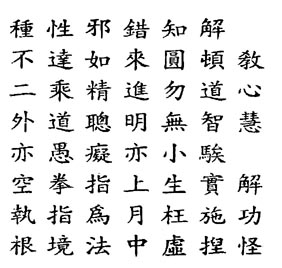 種性邪錯知解
不達如來圓頓教
二乘精進勿道心
外道聰明無智慧
亦愚癡亦小騃
空拳指上生實解
執指為月枉施功
根境法中虛揑怪